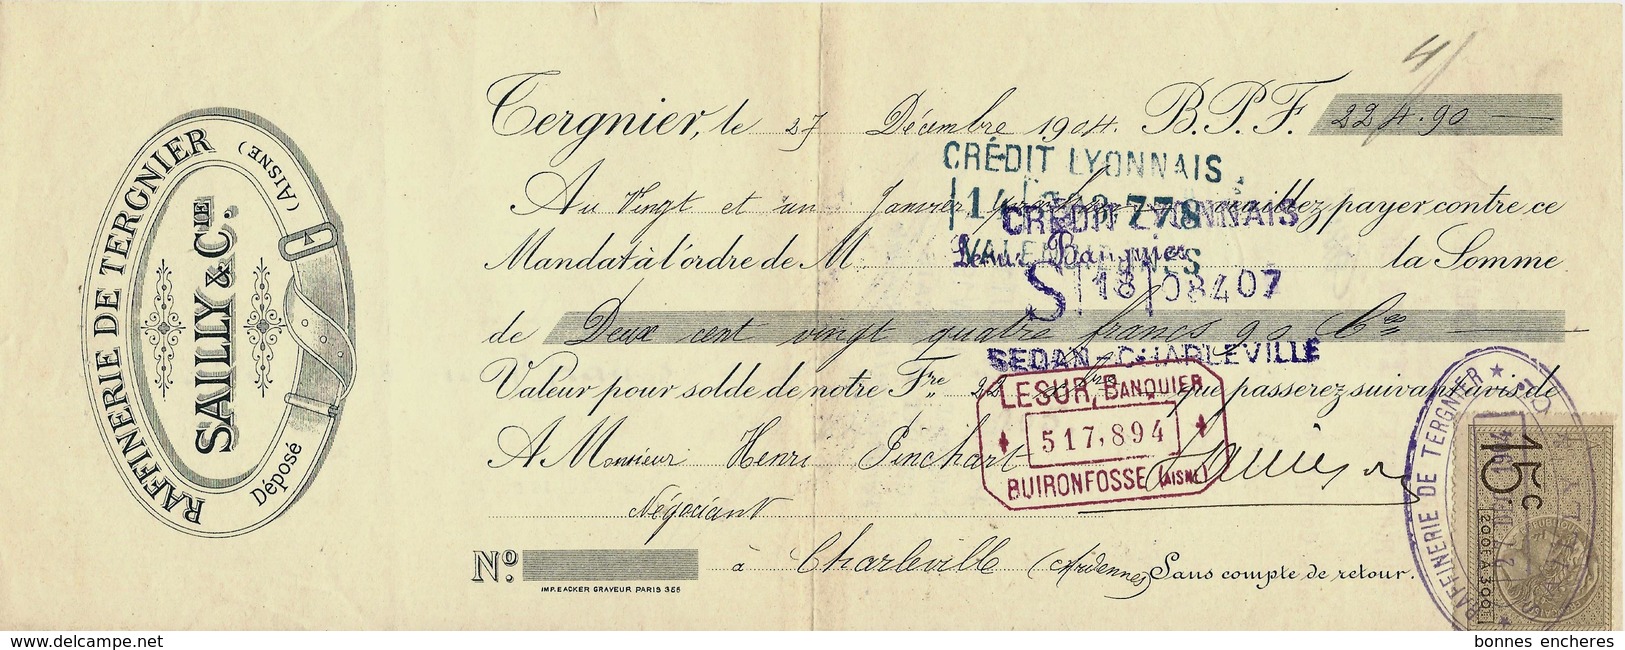 RAFFINERIE DE TERGNIER
(AISNE)
SAILLY & CIE
Déposé
4/
Tergnier, le 27 Décembre 1904. B.P.F. 224.90
CRÉDIT LYONNAIS
Au Vingt et un Janvier veuillez payer contre ce
778
CRÉDIT LYONNAIS
Mandat à l'ordre de M Banquier la Somme
S 18 08407
de Deux cent vingt quatre francs 90 Ces
SEDAN-CHARLEVILLE
Valeur pour solde de notre Fre 22 que passerez suivant avis de
LESUR, BANQUIER
517,894
BUIRONFOSSE (AISNE)
A Monsieur Henri Pinchart
Négociant
No. à Charleville (Ardennes) Sans compte de retour.
IMP. EACKER GRAVEUR PARIS 355
RAFFINERIE DE TERGNIER
15c
200F À 300F
bonnes encheres